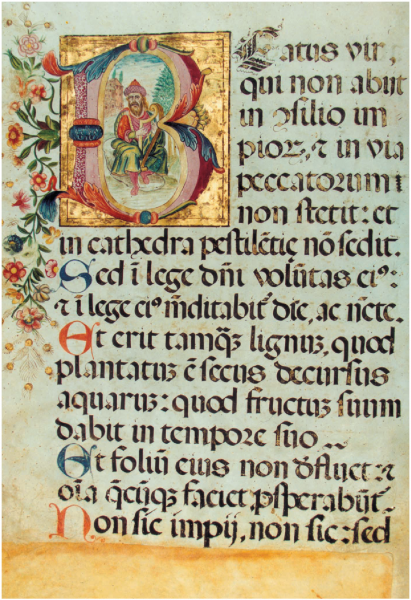 BEatus vir,
qui non abijt
in ꝯsilio im
pioꝝ, ⁊ in via
peccatorum
non stetit: et
in cathedra pestilētię nō sedit.
Sed ī lege dn̄i volūtas eiꝰ:
⁊ ī lege eiꝰ m̄ditabit̉ die, ac n̄cte.
Et erit tamqꝫ lignuꝫ, quod
plantatuꝫ ē secus decursus
aquaruꝫ: quod fructuꝫ suum
dabit in tempore suo
Et foliū eius non đfluet: ⁊
oīa q̄cūqꝫ faciet ꝓsperabūt̉.
Non sic impij, non sic: sed